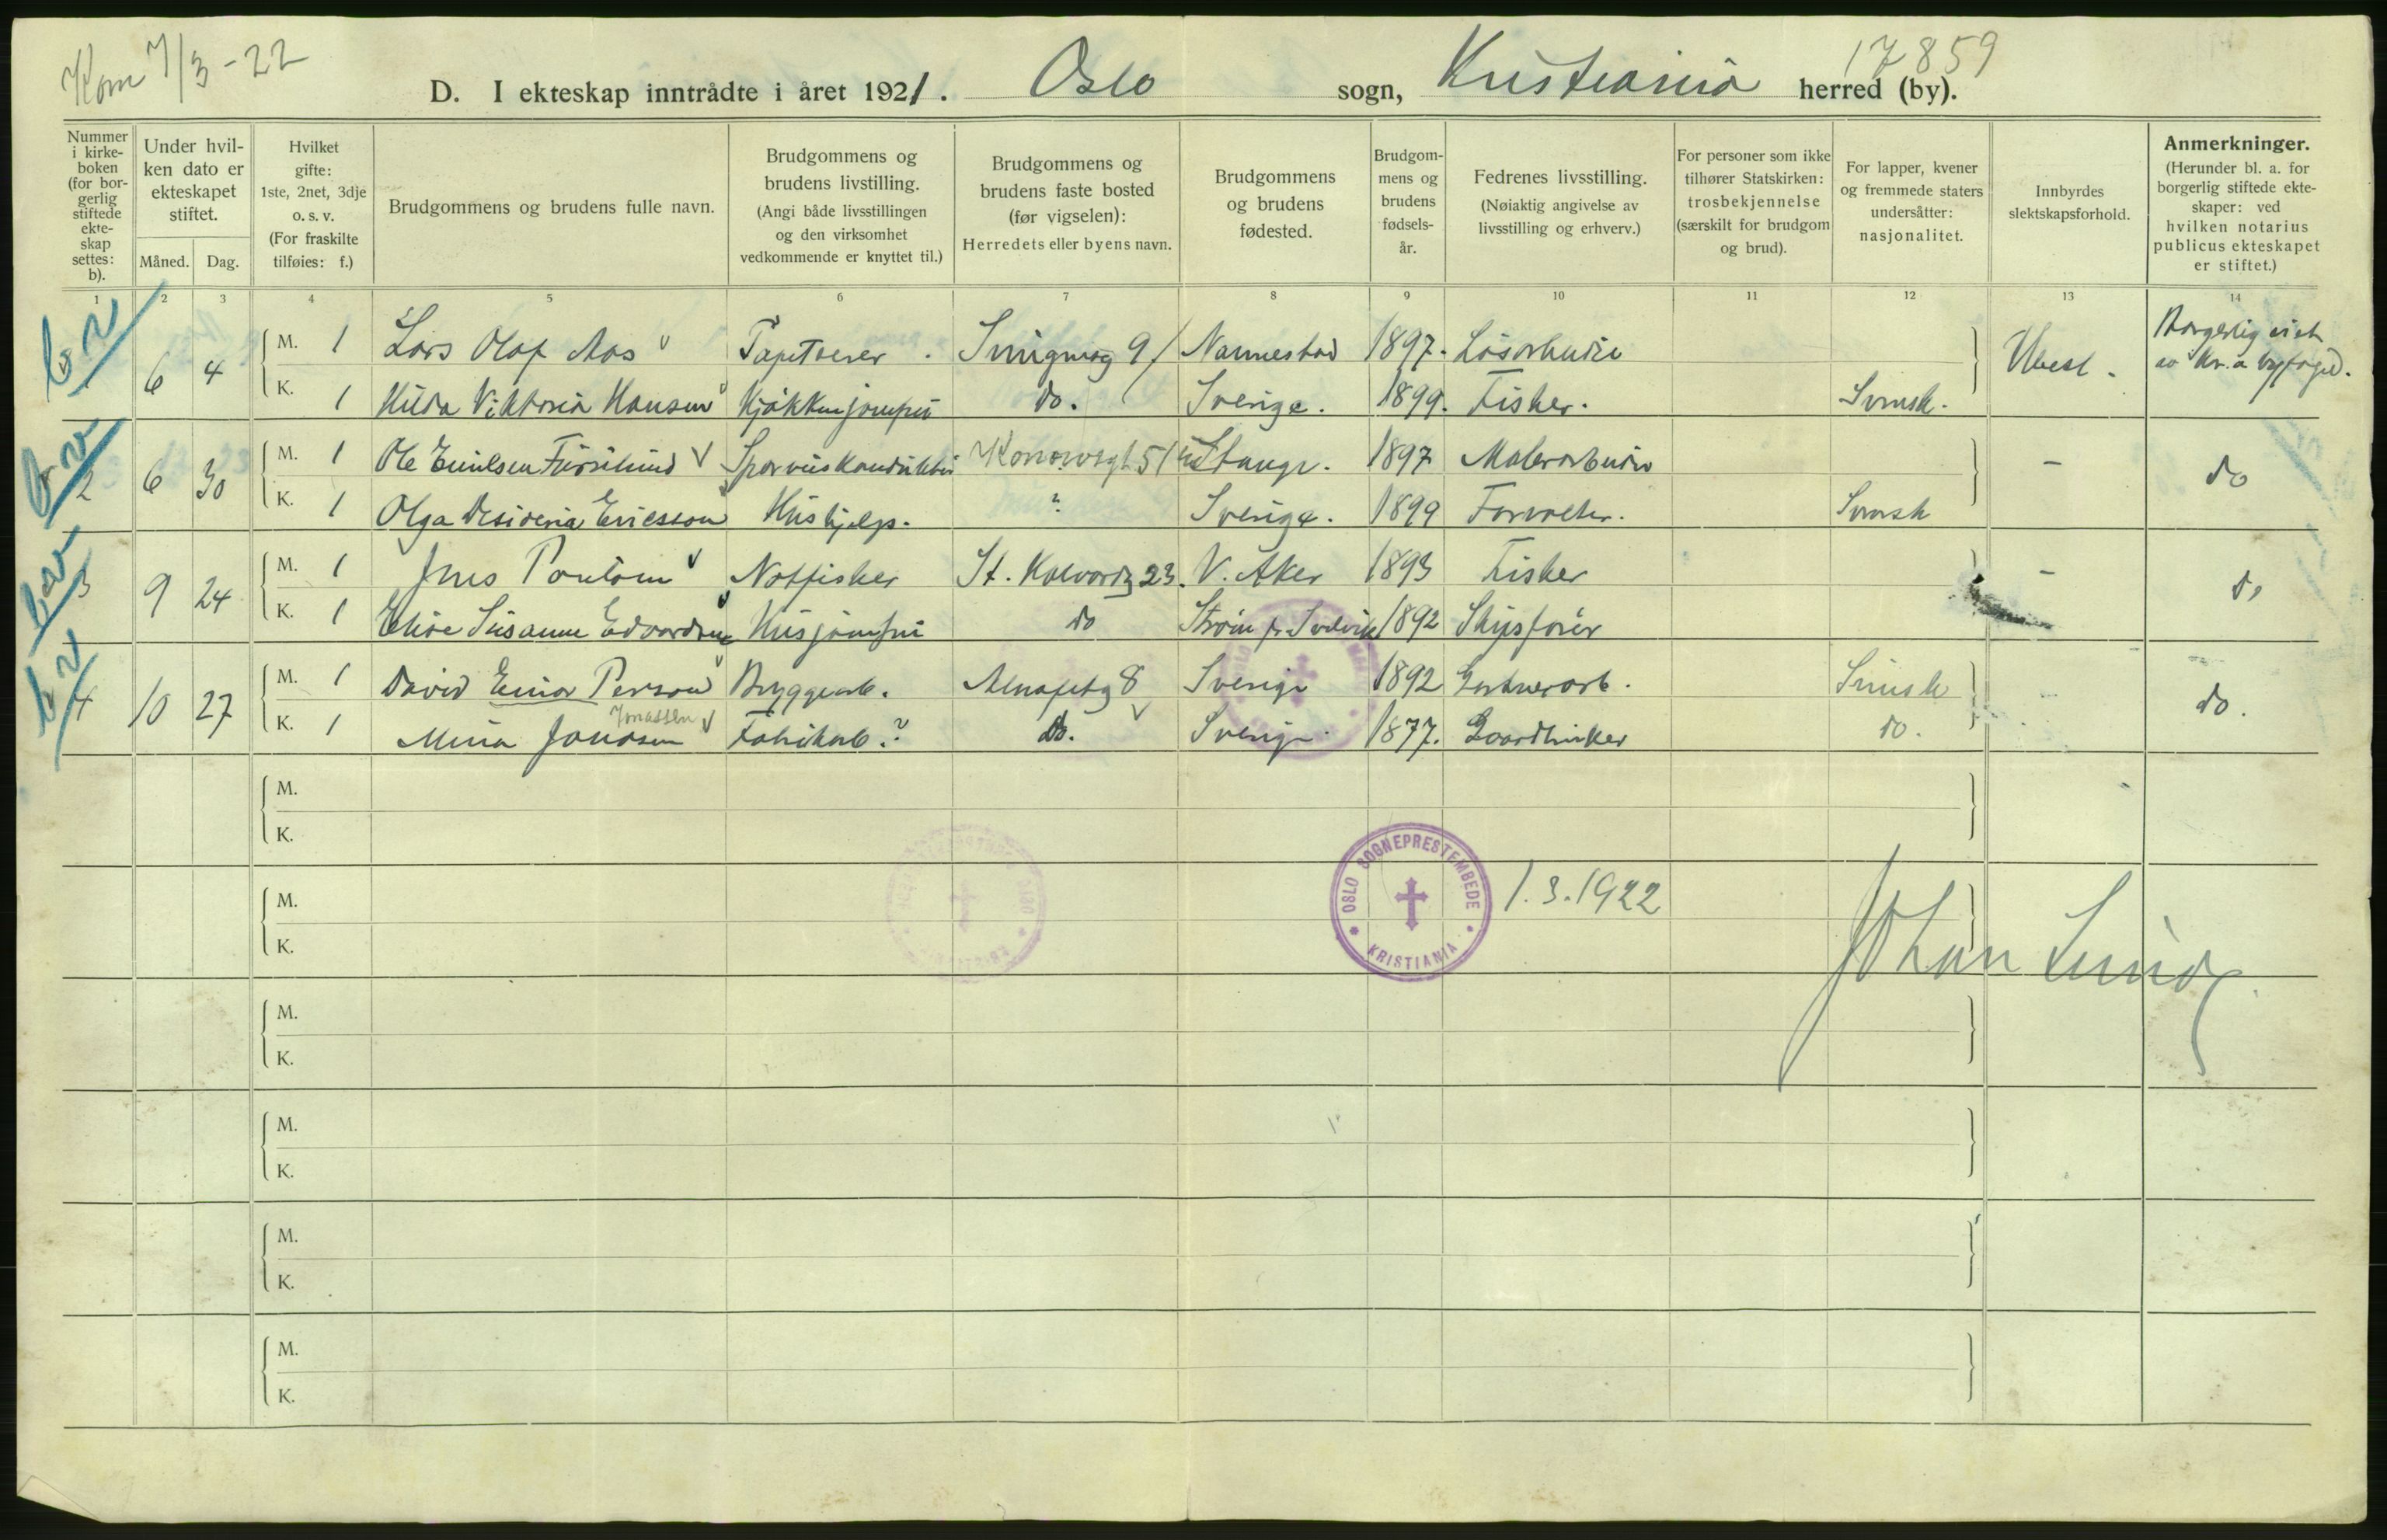 Kom 7/3 - 22
17859
D. I ekteskap inntrådte i året 1921. Oslo sogn, Kristiania herred (by).
Nummer i kirke-boken (for bor-gerlig stiftede ekte-skap settes: b).
Under hvil-ken dato er ekteskapet stiftet.
Måned. Dag.
Hvilket gifte: 1ste, 2net, 3dje o. s. v. (For fraskilte tilføies: f.)
Brudgommens og brudens fulle navn.
Brudgommens og brudens livstilling. (Angi både livsstillingen og den virksomhet vedkommende er knyttet til.)
Brudgommens og brudens faste bosted (før vigselen): Herredets eller byens navn.
Brudgommens og brudens fødested.
Brudgom-mens og brudens fødsels-år.
Fedrenes livsstilling. (Nøiaktig angivelse av livsstilling og erhverv.)
For personer som ikke tilhører Statskirken: trosbekjennelse (særskilt for brudgom og brud).
For lapper, kvener og fremmede staters undersåtter: nasjonalitet.
Innbyrdes slektskapsforhold.
Anmerkninger. (Herunder bl. a. for borgerlig stiftede ekte-skaper: ved hvilken notarius publicus ekteskapet er stiftet.)
1 2 3 4 5 6 7 8 9 10 11 12 13 14
6 4 M. 1 Lars Olaf Aas Tapetserer. 9 Nannestad 1897. Løsarbeider Ubesl. Borgerlig viet av Kr.a byfoged.
K. 1 Hilda Viktoria Hansen Kjøkkenjomfru do. Sverige. 1899. Fisker. Svensk.
2 6 30 M. 1 Ole Emilsen Sporveiskonduktør 51 Stange. 1897 Malerarbeider - do
K. 1 Olga Desideria Ericsson Hushjelp. ? Sverige. 1899 Forvalter. Svensk
3 9 24 M. 1 Jens Notfisker St. Halvardg 23. V. Aker 1893 Fisker - do
K. 1 Susanne Edvardsen Husjomfru do Strøm pr. Svelvik 1892 Skipsfører
4 10 27 M. 1 David Einar Person Bryggearb. Alnafetg 8 Sverige 1892 Gartnerarb. Svensk do.
K. 1 Mina Jonasen Jonassen Fabrikarb. ? do. Sverige. 1877. Gaardbruker do.
M.
K.
M.
K.
OSLO SOGNEPRESTEMBEDE KRISTIANIA
1. 3. 1922
Johan Lund
M.
K.
M.
K.
M.
K.
M.
K.